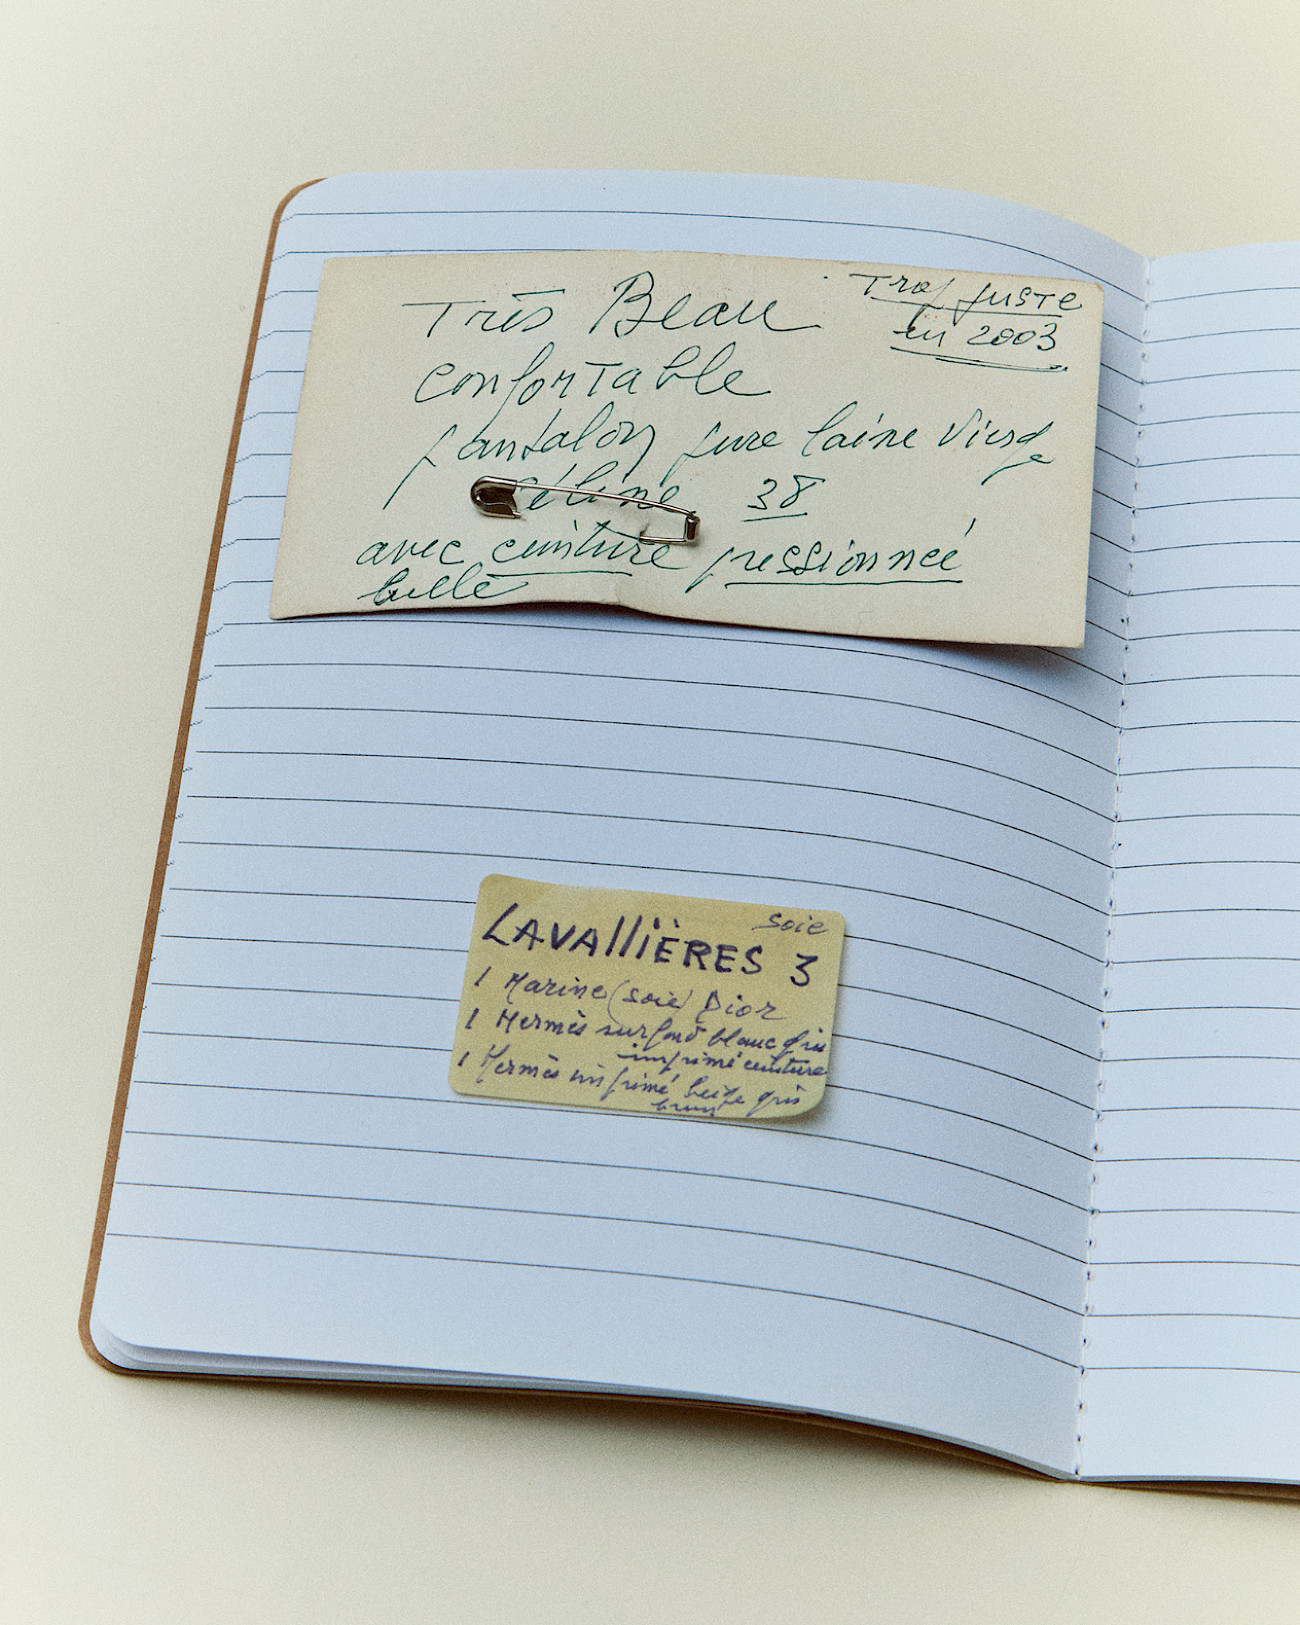 Très Beau
Trop juste
en 2003
confortable
pantalon pure laine vierge
Céline 38
avec ceinture pressionnée
belle
soie
LAVAllIÈRES 3
1 Marine (soie) Dior
1 Hermès sur fond blanc gris
imprimé ceinture
1 Hermès imprimé beige gris
brun